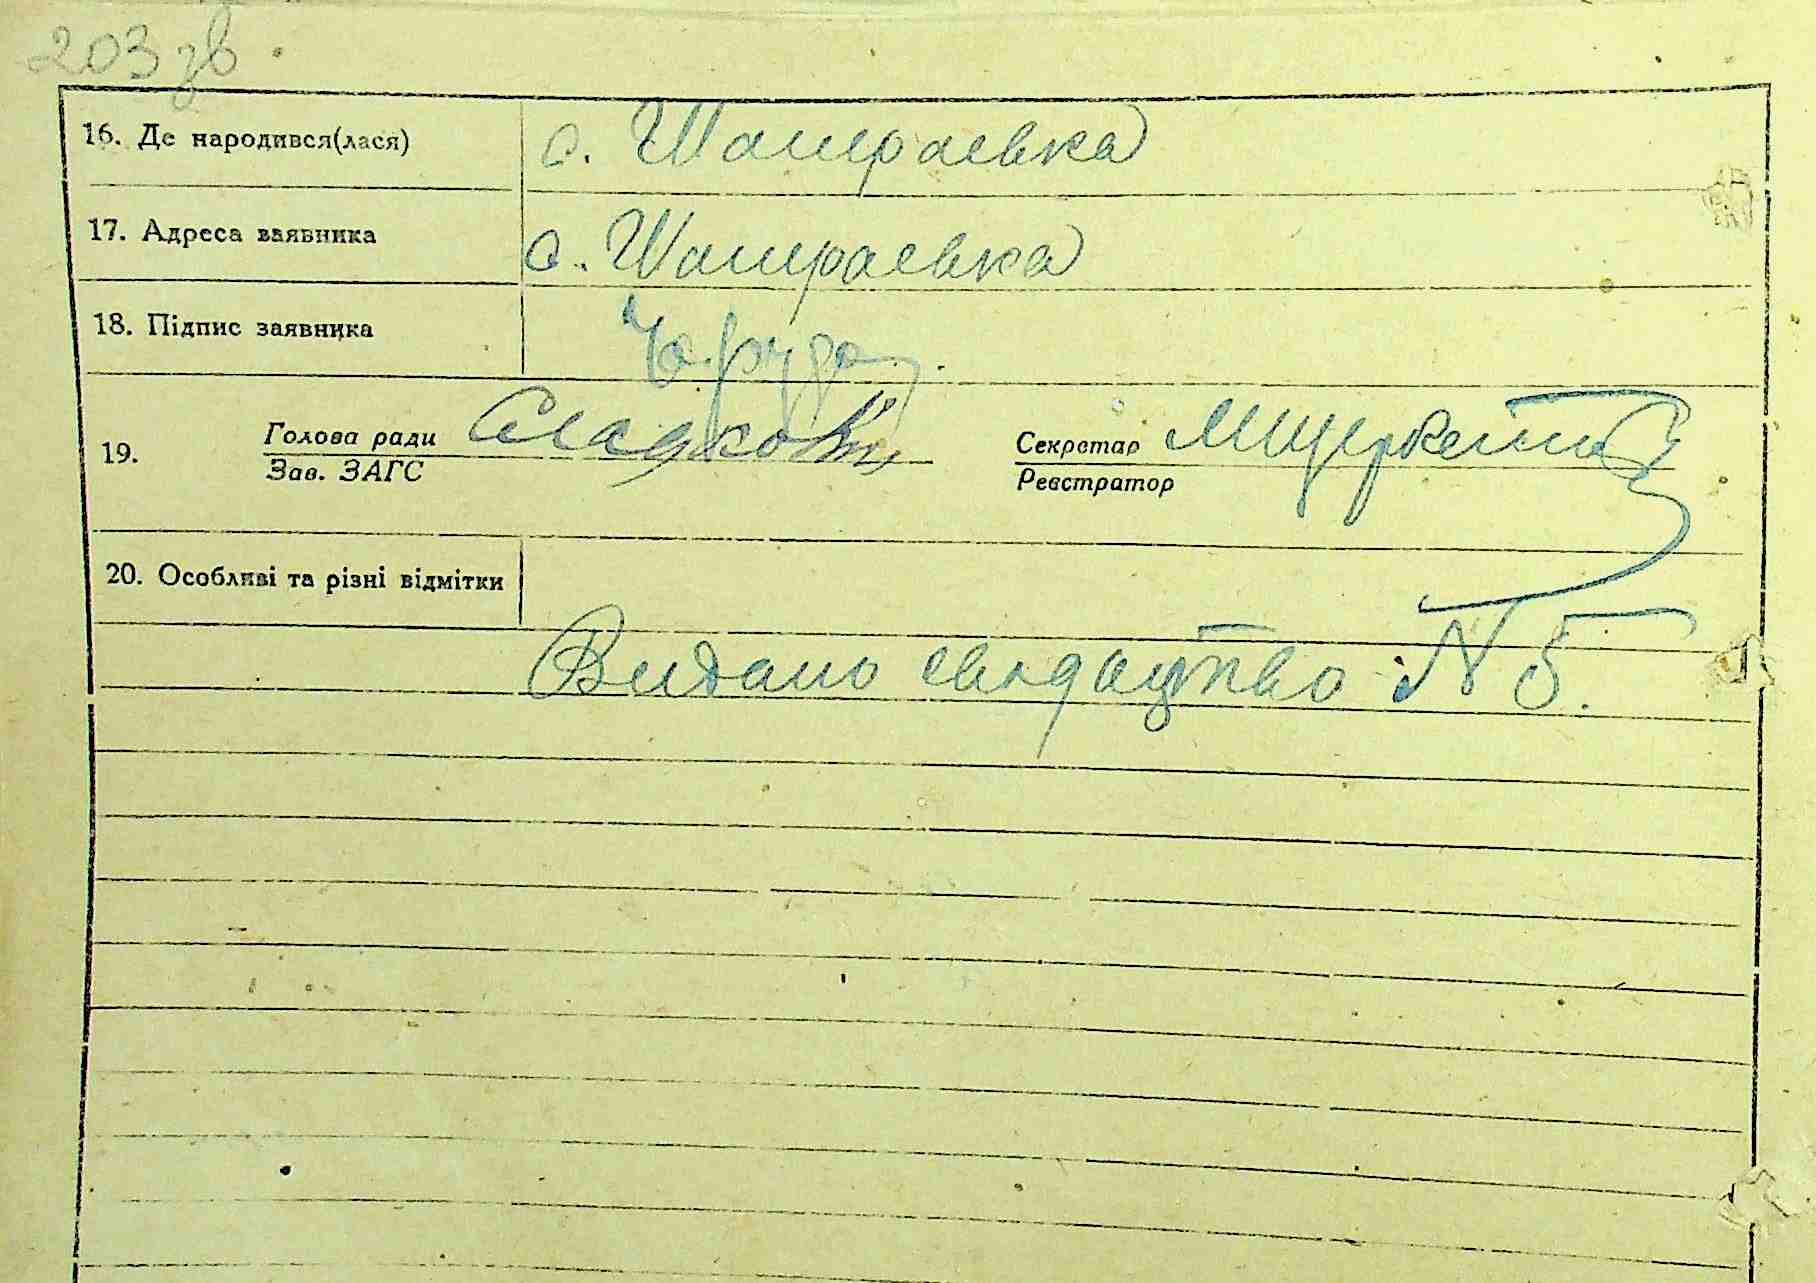 203 зв.
16. Де народився(лася) с. Шамраевка
17. Адреса заявника с. Шамраевка
18. Підпис заявника
19. Голова ради Секретар
Зав. ЗАГС Реєстратор
20. Особливі та різні відмітки
Видано свидоцтво N 5.